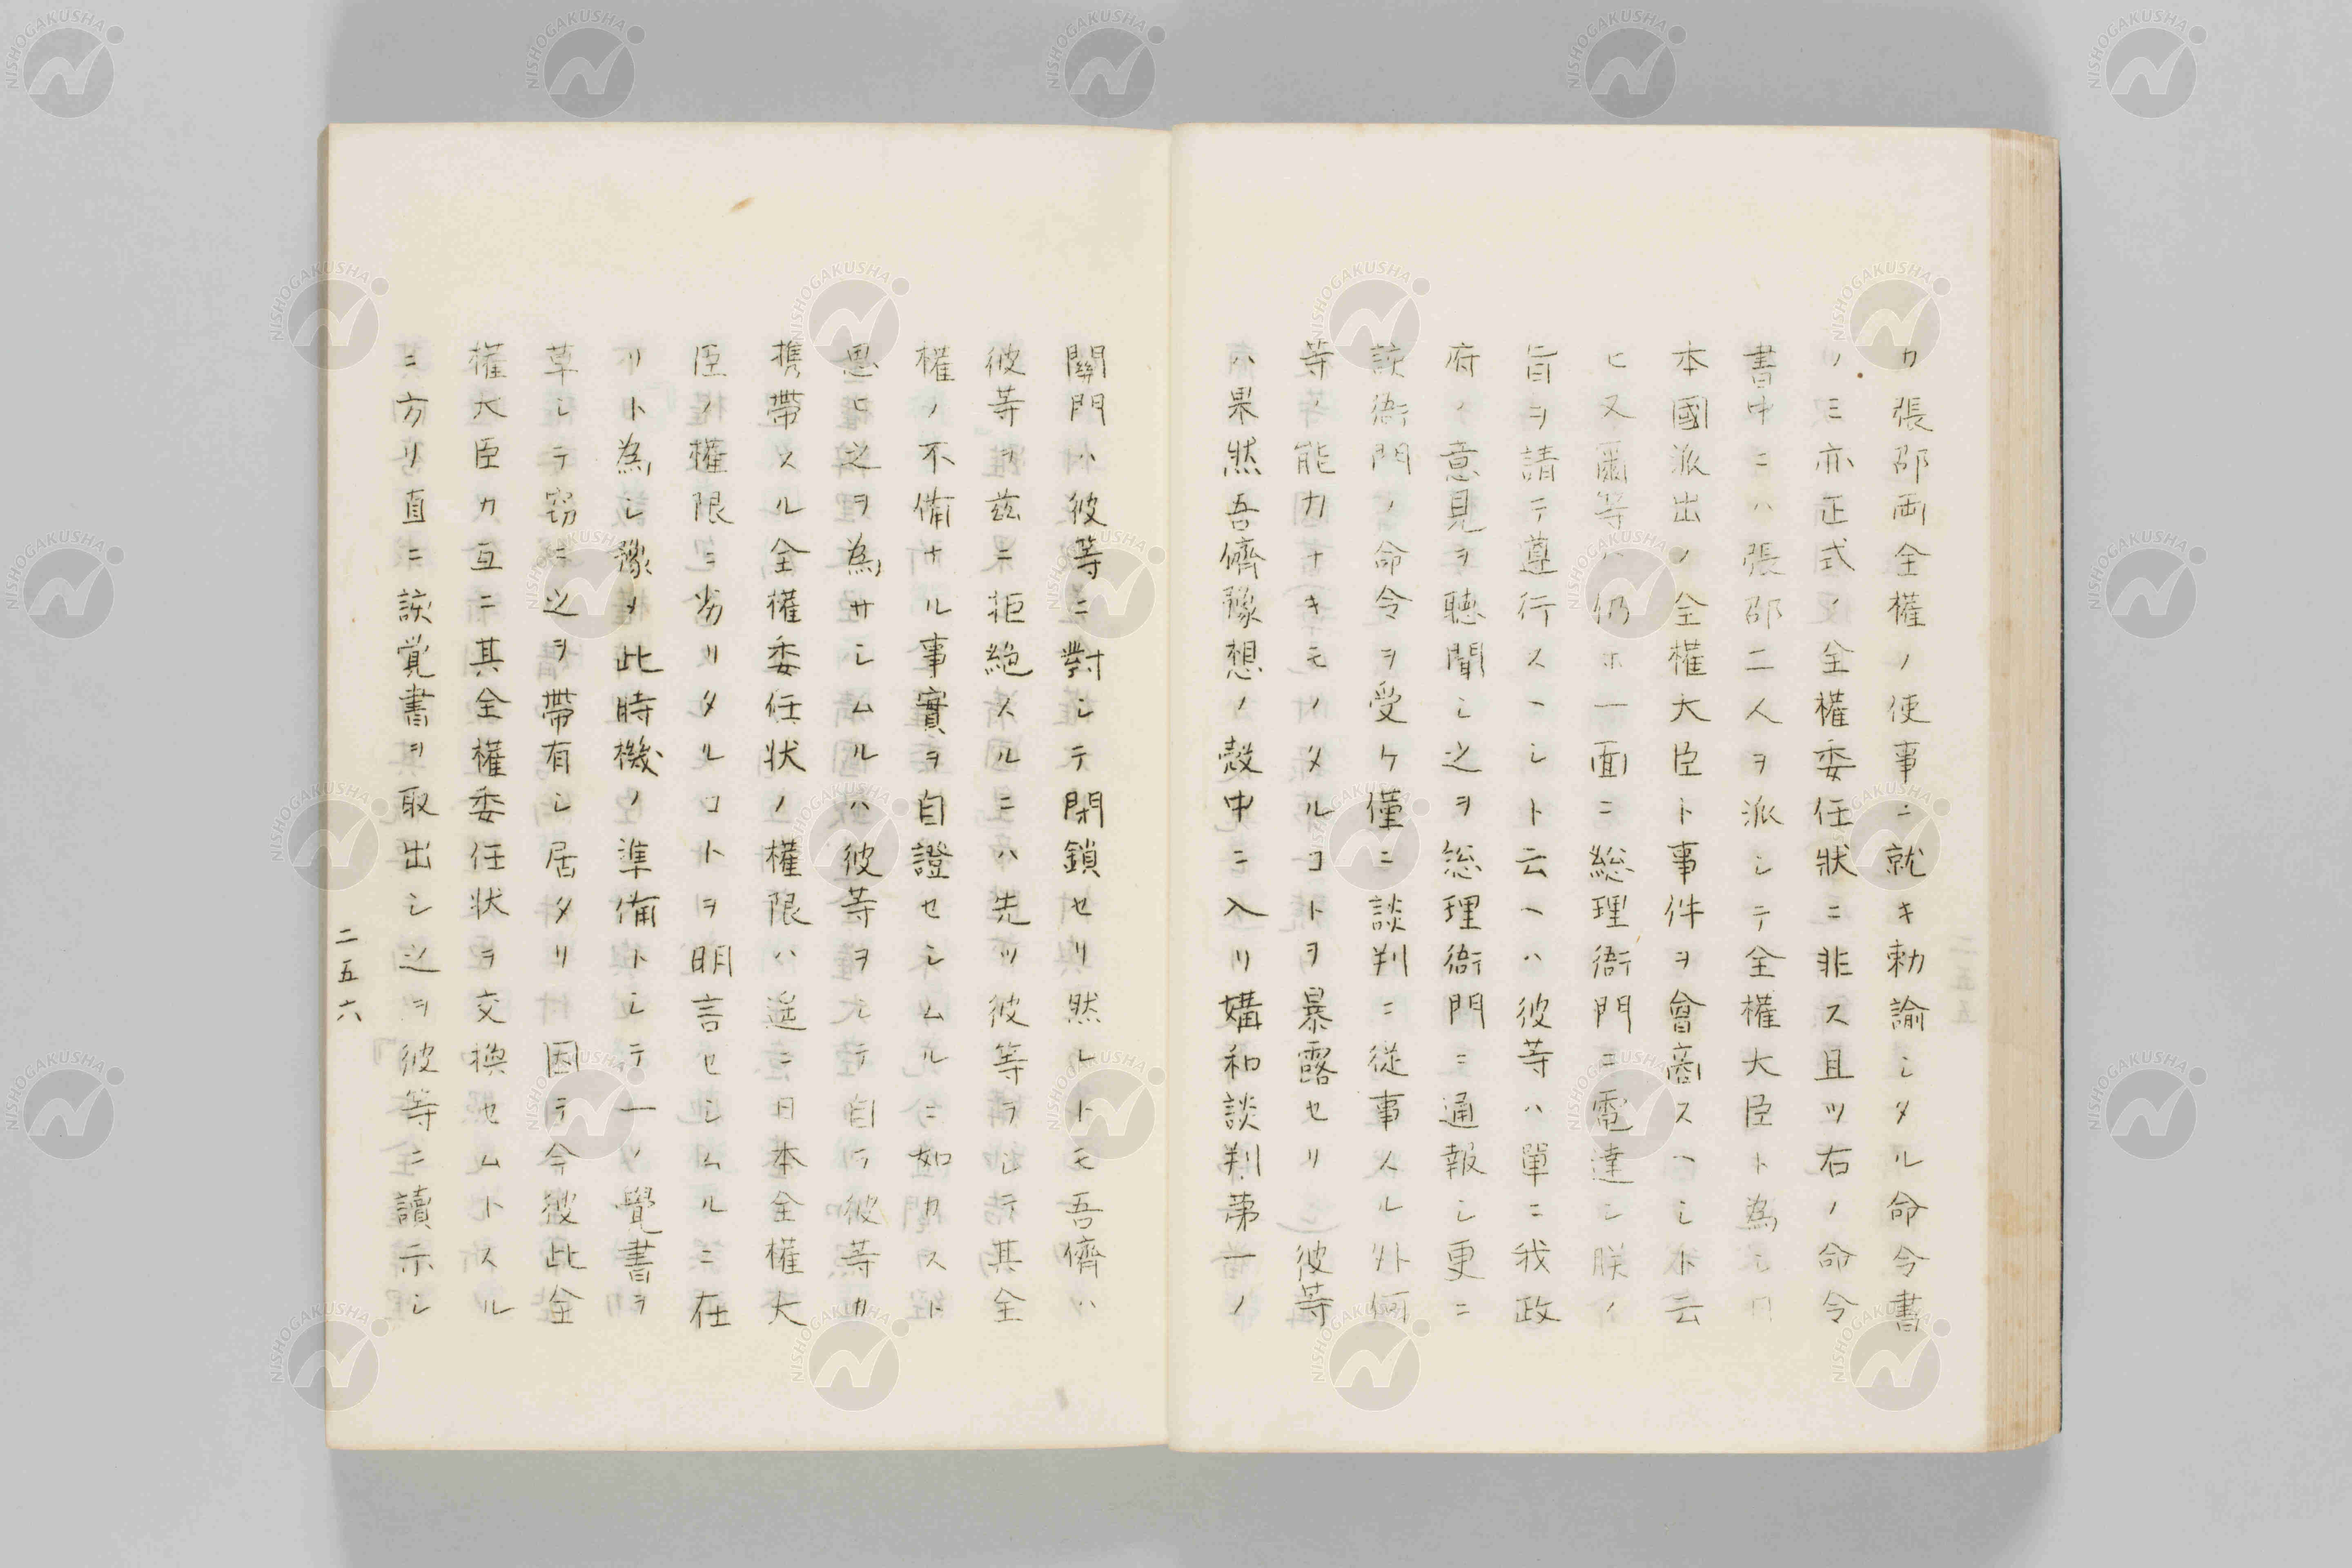 カ張邵両全權ノ使事ニ就キ勅諭シタル命令書
ノミ亦正式ノ全權委任狀ニ非ス且ツ右ノ命令
書中ニハ張邵二人ヲ派シテ全權大臣ト為シ日
本國派出ノ全權大臣ト事件ヲ會商スヘシト云
ヒ又爾等ハ仍ホ一面ニ総理衙門ニ電達シ朕ノ
旨ヲ請テ遵行スヘシト云ヘハ彼等ハ單ニ我政
府ノ意見ヲ聴聞シ之ヲ総理衙門ニ通報シ更ニ
該衙門ノ命令ヲ受ケ僅ニ談判ニ従事スル外何
等ノ能力ナキモノタルコトヲ暴露セリ彼等
ハ果然吾儕豫想ノ殻中ニ入リ媾和談判第一ノ
關門ハ彼等ニ對シテ閉鎖セリ然レトモ吾儕ハ
彼等ヲ茲ニ拒絶スルニハ先ツ彼等ヲシテ其全
權ノ不備ナル事實ヲ自證セシムルニ如カスト
思ヒ之ヲ為サシムルハ彼等ヲシテ自ラ彼等カ
携帶スル全權委任状ノ權限ハ遥ニ日本全權大
臣ノ權限ニ劣リタルコトヲ明言セシムルニ在
リト為シ豫メ此時機ノ準備トシテ一ノ覺書ヲ
草シテ窃ニ之ヲ帶有シ居タリ因テ今彼此全
權大臣カ互ニ其全權委任状ヲ交換セムトスル
ニ方リ直ニ該覚書ヲ取出シ之ヲ彼等ニ讀示シ
二五六
NISHOGAKUSHA